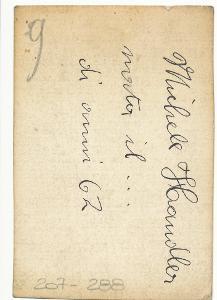 9
Michele Handler
nata il ...
di anni 62
207-288